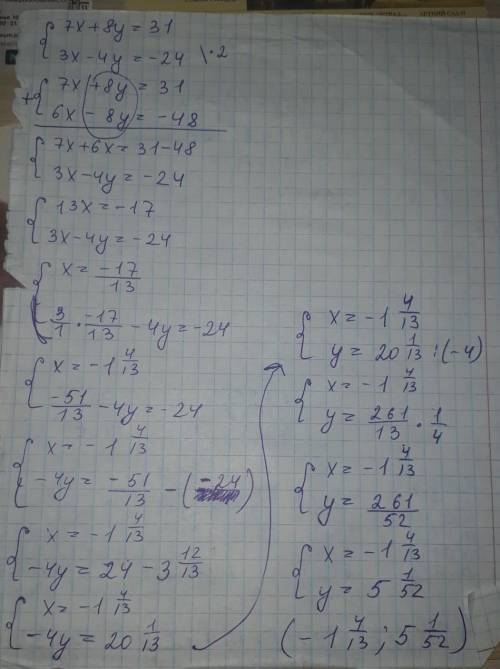 { 7x+8y=31
3x-4y=-24 \·2
+{ 7x+8y=31
6x-8y=-48
{ 7x+6x=31-48
3x-4y=-24
{ 13x=-17
3x-4y=-24
{ x= -17/13
3/1 · -17/13 -4y=-24
{ x=-1 4/13
-51/13 -4y=-24
{ x=-1 4/13
-4y= -51/13 -(-24)
{ x=-1 4/13
-4y=24-3 12/13
{ x=-1 4/13
-4y=20 1/13
{ x=-1 4/13
y=20 1/13 :(-4)
{ x=-1 4/13
y= 261/13 · 1/4
{ x=-1 4/13
y= 261/52
{ x=-1 4/13
y=5 1/52
(-1 4/13 ; 5 1/52)